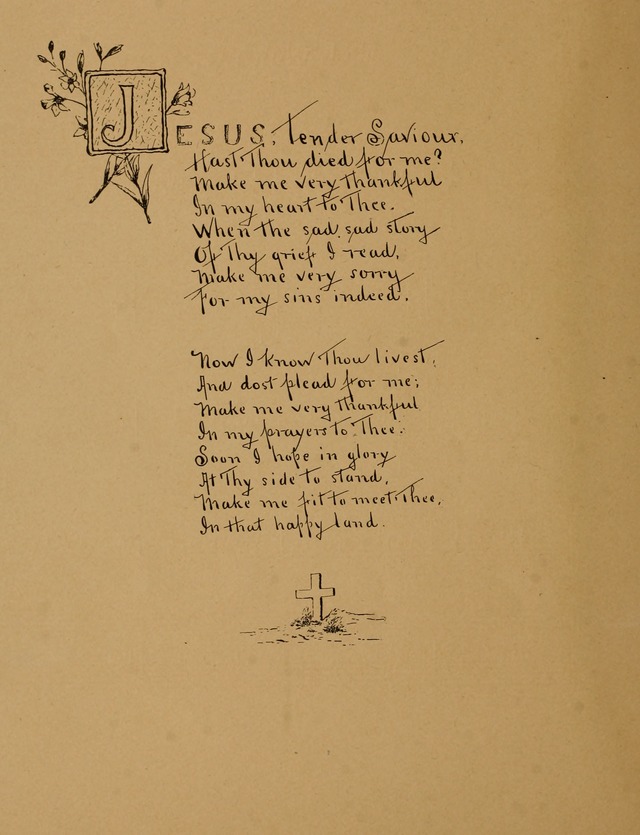 JESUS, tender Saviour,
Hast Thou died for me?
Make me very thankful
In my heart to Thee.
When the sad, sad story
Of Thy grief I read,
Make me very sorry
For my sins indeed.
Now I know Thou livest,
And dost plead for me;
Make me very thankful
In my prayers to Thee.
Soon I hope in glory
At Thy side to stand,
Make me fit to meet Thee,
In that happy land.